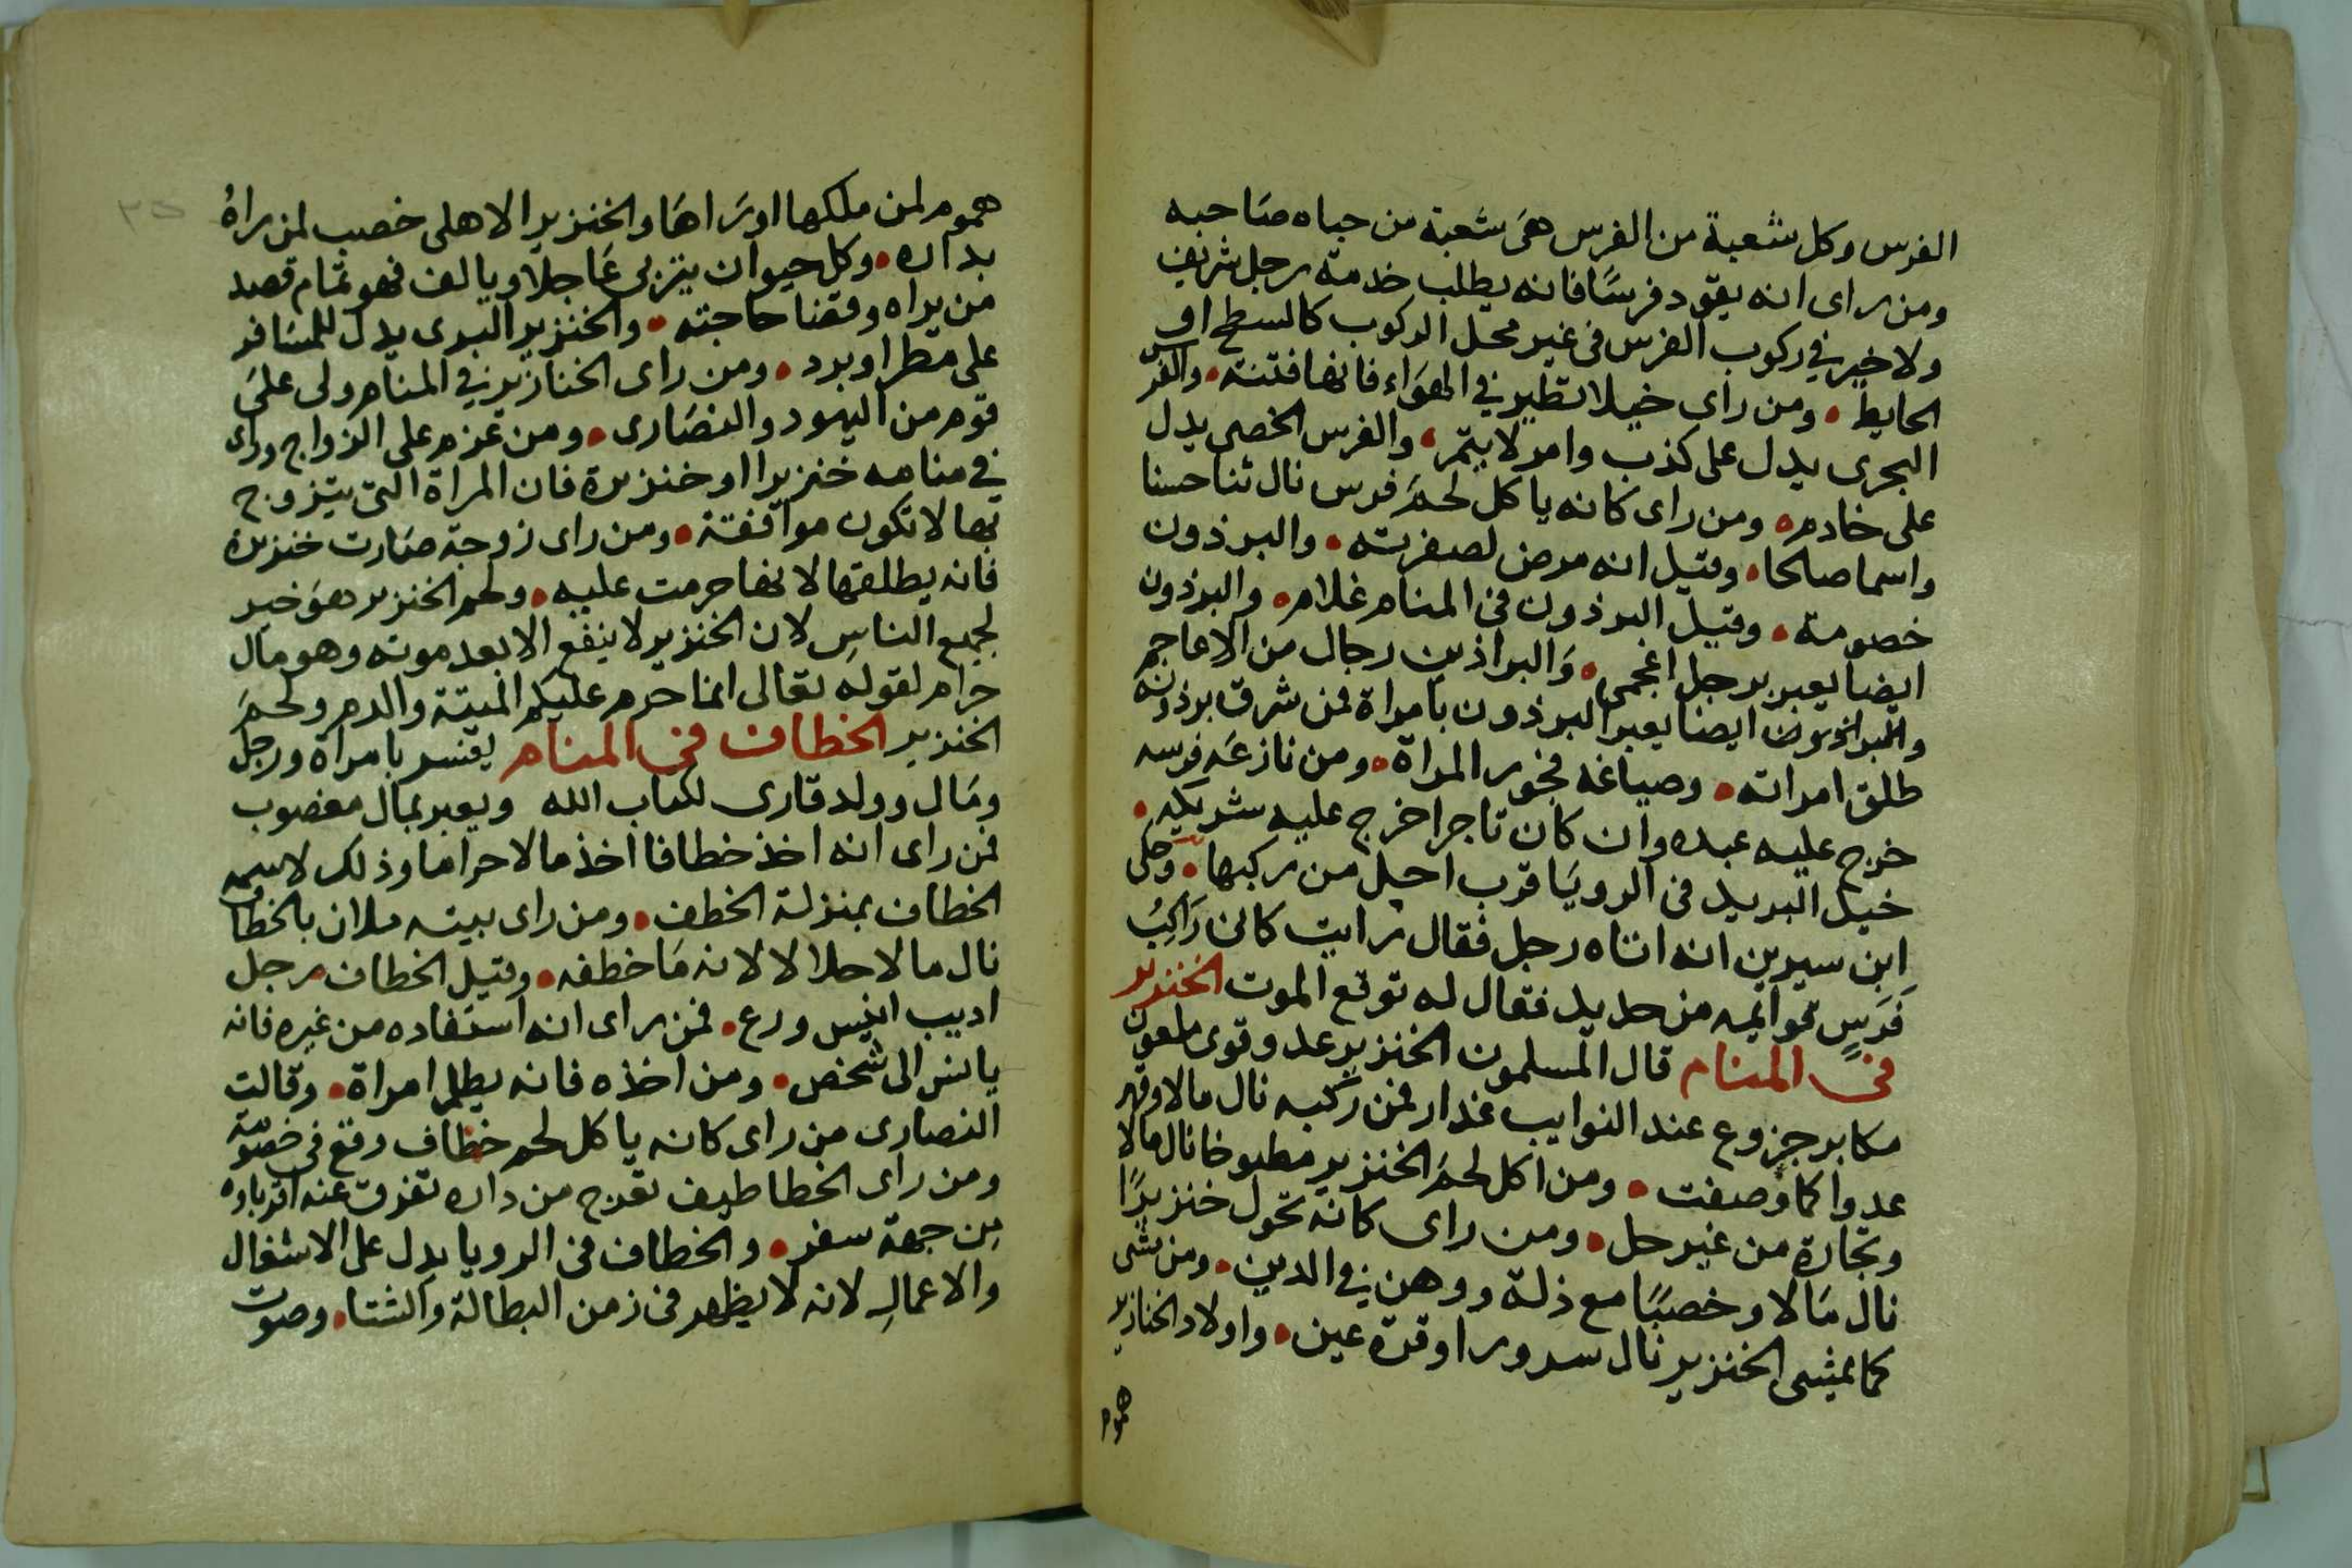 الفرس وكل شعبة من الفرس هى شعبة من حباه صاحبه
ومن راى انه يقود فرسا فانه يطلب خدمة رجل شريف
ولا خير في ركوب الفرس فى غير محل الركوب كالسطح او
الحايط • ومن راى خيلا تطير في الهواء فانها فتنة • والفرس
البحرى يدل على كذب وامر لا يتم • والفرس الخصى يدل
على خادم • ومن راى كانه ياكل لحم فرس نال ثنا حسنا
واسما صالحا • وقيل انه مرض لصفرته • والبرذون
خصومة • وقيل البرذون فى المنام غلام • والبرذون
ايضا يعبر برجل اعجمى • والبراذين رجال من الاعاجم
والبراذين ايضا يعبر البرذون بامراة فمن شرق برذونه
طلق امراته • وصياغه فجور المراة • ومن نازعه فرسه
خرج عليه عبده وان كان تاجرا خرج عليه شريكه •
خيل البريد فى الرويا قرب اجل من ركبها • وحكى
ابن سيرين انه اتاه رجل فقال رايت كانى راكب
فرس قوائمه من حديد فقال له توقع الموت الخنزير
فى المنام قال المسلمون الخنزير عدو قوى ملعون
مكابر جزوع عند النوايب غدار فمن ركبه نال مالا وقهر
عدوا كما وصفت • ومن اكل لحم الخنزير مطبوخا نال مالا
وتجارة من غير حل • ومن راى كانه تحول خنزيرا
نال مالا وخصبا مع ذلة ووهن في الدين • ومن مشى
كما يمشى الخنزير نال سرورا وقرة عين • واولاد الخنازير
هموم
هموم لمن ملكها او راها والخنزير الاهلى خصب لمن راه
بداره • وكل حيوان يتربى عاجلا ويالف فهو تمام قصد
من يراه وقضا حاجته • والخنزير البرى يدل للمسافر
على مطر او برد • ومن راى الخنازير في المنام ولى على
قوم من اليهود والنصارى • ومن عزم على الزواج وراى
في منامه خنزيرا او خنزيرة فان المراة التى يتزوج
بها لا تكون موافقة • ومن راى زوجة صارت خنزيرة
فانه يطلقها لانها حرمت عليه • ولحم الخنزير هو خير
لجميع الناس لان الخنزير لا ينفع الا بعد موته وهو مال
حرام لقوله تعالى انما حرم عليكم الميتة والدم ولحم
الخنزير الخطاف فى المنام يفسر بامراة ورجل
ومال وولد قارى لكتاب الله ويعبر بمال مغصوب
فمن راى انه اخذ خطافا اخذ مالا حراما وذلك لاسمه
الخطاف بمنزلة الخطف • ومن راى بيته ملان بالخطاف
نال مالا حلالا لانه ما خطفه • وقيل الخطاف رجل
اديب انيس ورع • فمن راى انه استفاده من غيره فانه
يانس الى شخص • ومن اخذه فانه يظلم امراة • وقالت
النصارى من راى كانه ياكل لحم خطاف وقع فى خصومة
ومن راى الخطاطيف تخرج من داره تفرق عنه اقرباوه
من جهة سفر • والخطاف فى الرويا يدل على الاشغال
والاعمال لانه لا يظهر فى زمن البطالة والشتا • وصوت
٣٥